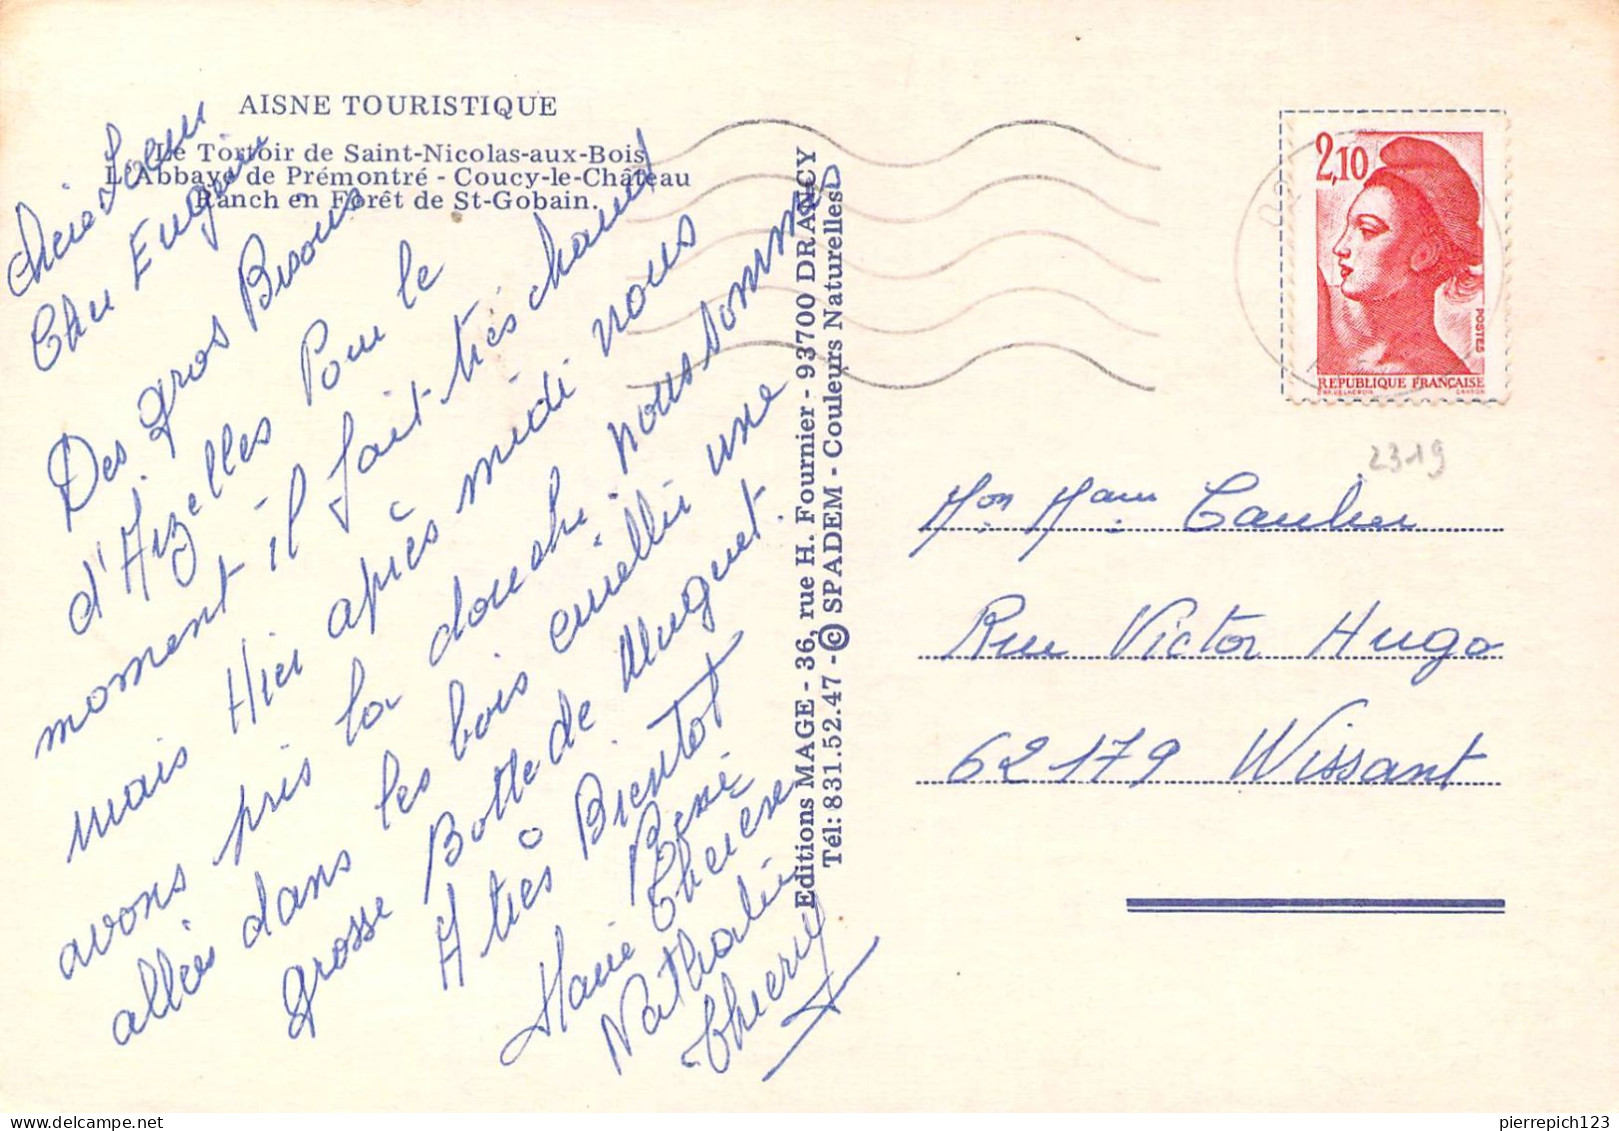 AISNE TOURISTIQUE
Le Tortoir de Saint-Nicolas-aux-Bois
L'Abbaye de Prémontré - Coucy-le-Château
Ranch en Forêt de St-Gobain.
Cher Eugène
Des gros Bisous
d'Aizelles Pour le
moment il fait très chaud
mais Hier après midi nous
avons pris la douche. nous sommes
allées dans les bois cueillir une
grosse Botte de Muguet.
A très Bientot
Marie Therese
Nathalie
Thierry
Editions MAGE - 36, rue H. Fournier - 93700 DRANCY
Tél: 831.52.47 - © SPADEM - Couleurs Naturelles
2,10
POSTES
RÉPUBLIQUE FRANÇAISE
2319
Rue Victor Hugo
62179 Wissant
pierrepich123